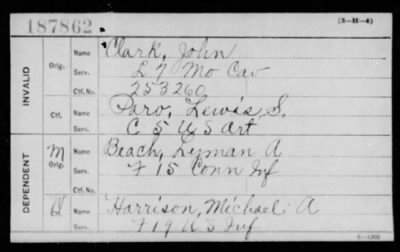 187862
(3-H-4)
INVALID
Orig.
Name Clark, John
Serv. L 7 Mo Cav
Ctf. No. 253260
Ctf.
Name Paro, Lewis S.
Serv. C 5 U S Art
DEPENDENT
M Orig.
Name Beach, Lyman A
Serv. F 15 Conn Inf
Ctf. No.
Ctf.
Name Harrison, Michael A
Serv. F 19 U S Inf